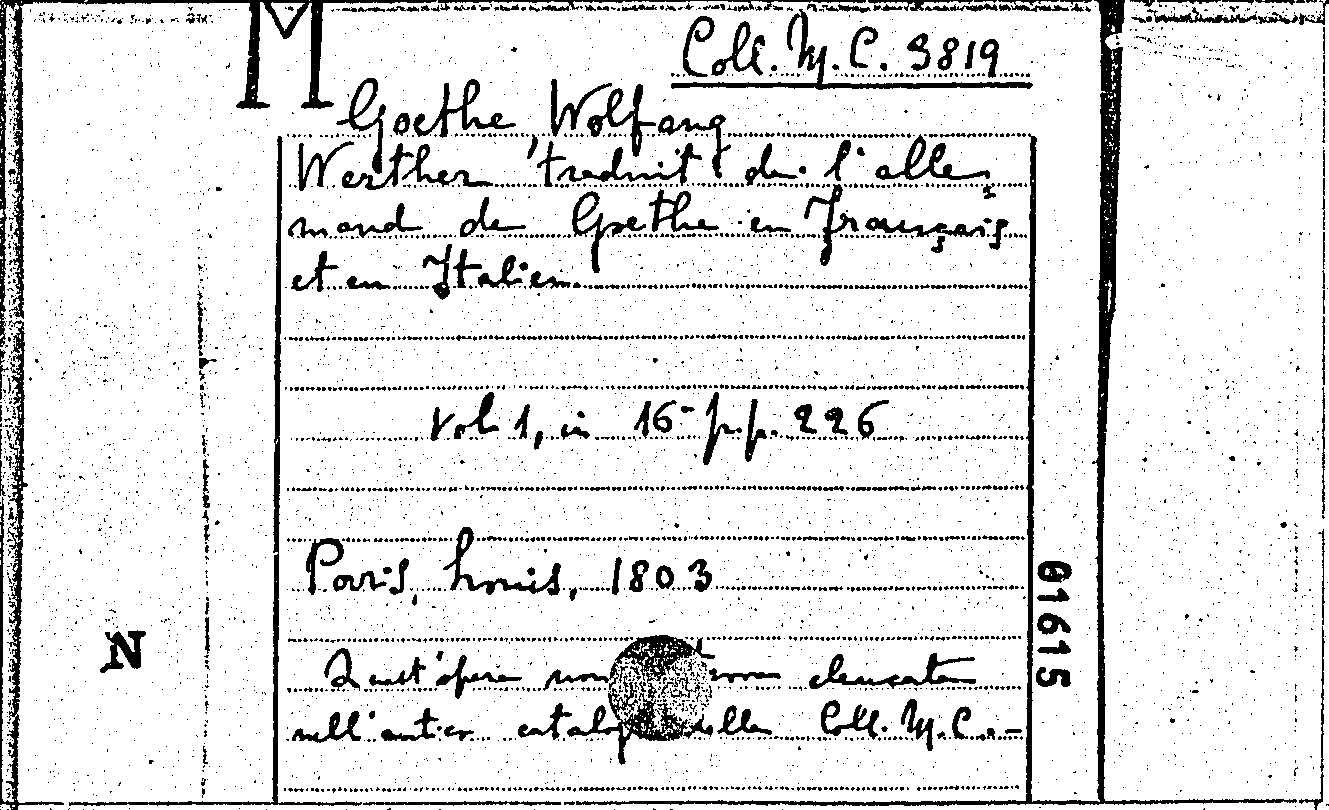 M
Coll. M. C. 3819
Goethe Wolfang
Werther traduit de l'alle
mand de Goethe en Français
et en Italien.
vol. 1, in 16° p.p. 226
Paris, Louis, 1803
N
01615
Quest'opera non elencata
nell'antico catalogo della Coll. M. C. -